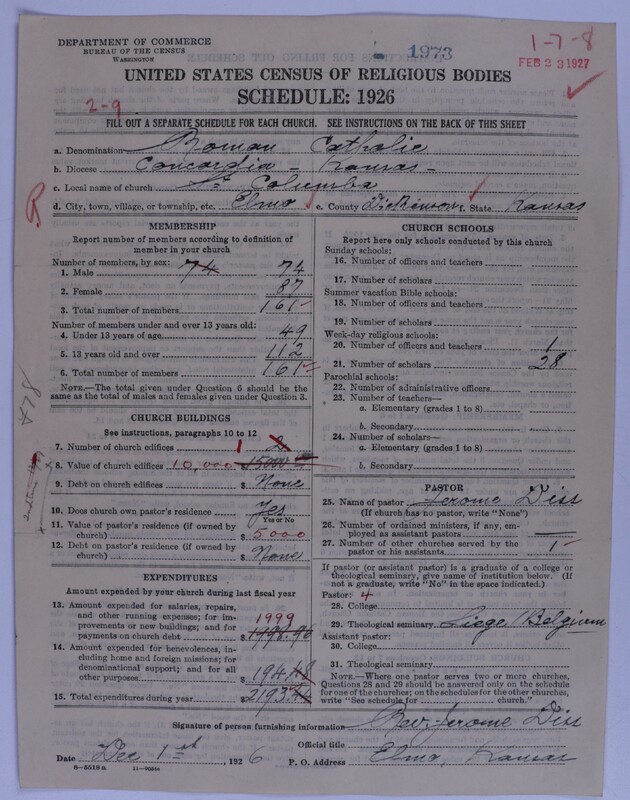 DEPARTMENT OF COMMERCE
BUREAU OF THE CENSUS
WASHINGTON
1973
1-7-8
FEB 23 1927
UNITED STATES CENSUS OF RELIGIOUS BODIES
SCHEDULE: 1926
2-9
FILL OUT A SEPARATE SCHEDULE FOR EACH CHURCH. SEE INSTRUCTIONS ON THE BACK OF THIS SHEET
a. Denomination Roman Catholic
b. Diocese Concordia - Kansas -
c. Local name of church St Columba
d. City, town, village, or township, etc. Elmo e. County Dickinson f. State Kansas
R
MEMBERSHIP
Report number of members according to definition of
member in your church
Number of members, by sex:
1. Male 74 74
2. Female 87
3. Total number of members 161
Number of members under and over 13 years old:
4. Under 13 years of age 49
5. 13 years old and over 112
6. Total number of members 161
NOTE.—The total given under Question 6 should be
the same as the total of males and females given under Question 3.
CHURCH BUILDINGS
See instructions, paragraphs 10 to 12
7. Number of church edifices 1 2
8. Value of church edifices 10,000 $15000
9. Debt on church edifices $ None
10. Does church own pastor's residence? Yes
Yes or No
11. Value of pastor's residence (if owned by
church) $ 5000
12. Debt on pastor's residence (if owned by
church) $ None
EXPENDITURES
Amount expended by your church during last fiscal year
13. Amount expended for salaries, repairs,
and other running expenses; for im-
provements or new buildings; and for
payments on church debt $ 1999 1998.96
14. Amount expended for benevolences, in-
cluding home and foreign missions; for
denominational support; and for all
other purposes $ 194.48
15. Total expenditures during year $ 2193.44
CHURCH SCHOOLS
Report here only schools conducted by this church
Sunday schools:
16. Number of officers and teachers
17. Number of scholars
Summer vacation Bible schools:
18. Number of officers and teachers
19. Number of scholars
Week-day religious schools:
20. Number of officers and teachers 1
21. Number of scholars 28
Parochial schools:
22. Number of administrative officers
23. Number of teachers—
a. Elementary (grades 1 to 8)
b. Secondary
24. Number of scholars—
a. Elementary (grades 1 to 8)
b. Secondary
PASTOR
25. Name of pastor Jerome Diss
(If church has no pastor, write "None")
26. Number of ordained ministers, if any, em-
ployed as assistant pastors —
27. Number of other churches served by the
pastor or his assistants 1
If pastor (or assistant pastor) is a graduate of a college or
theological seminary, give name of institution below. (If
not a graduate, write "No" in the space indicated.)
Pastor: 4
28. College
29. Theological seminary Liege/Belgium
Assistant pastor:
30. College
31. Theological seminary
NOTE.—Where one pastor serves two or more churches,
Questions 28 and 29 should be answered only on the schedule
for one of the churches; on the schedules for the other churches,
write "See schedule for church."
Signature of person furnishing information Rev. Jerome Diss
Official title
Date Dec 1st, 1926 P. O. Address Elmo, Kansas
8-5518a 11-9554a